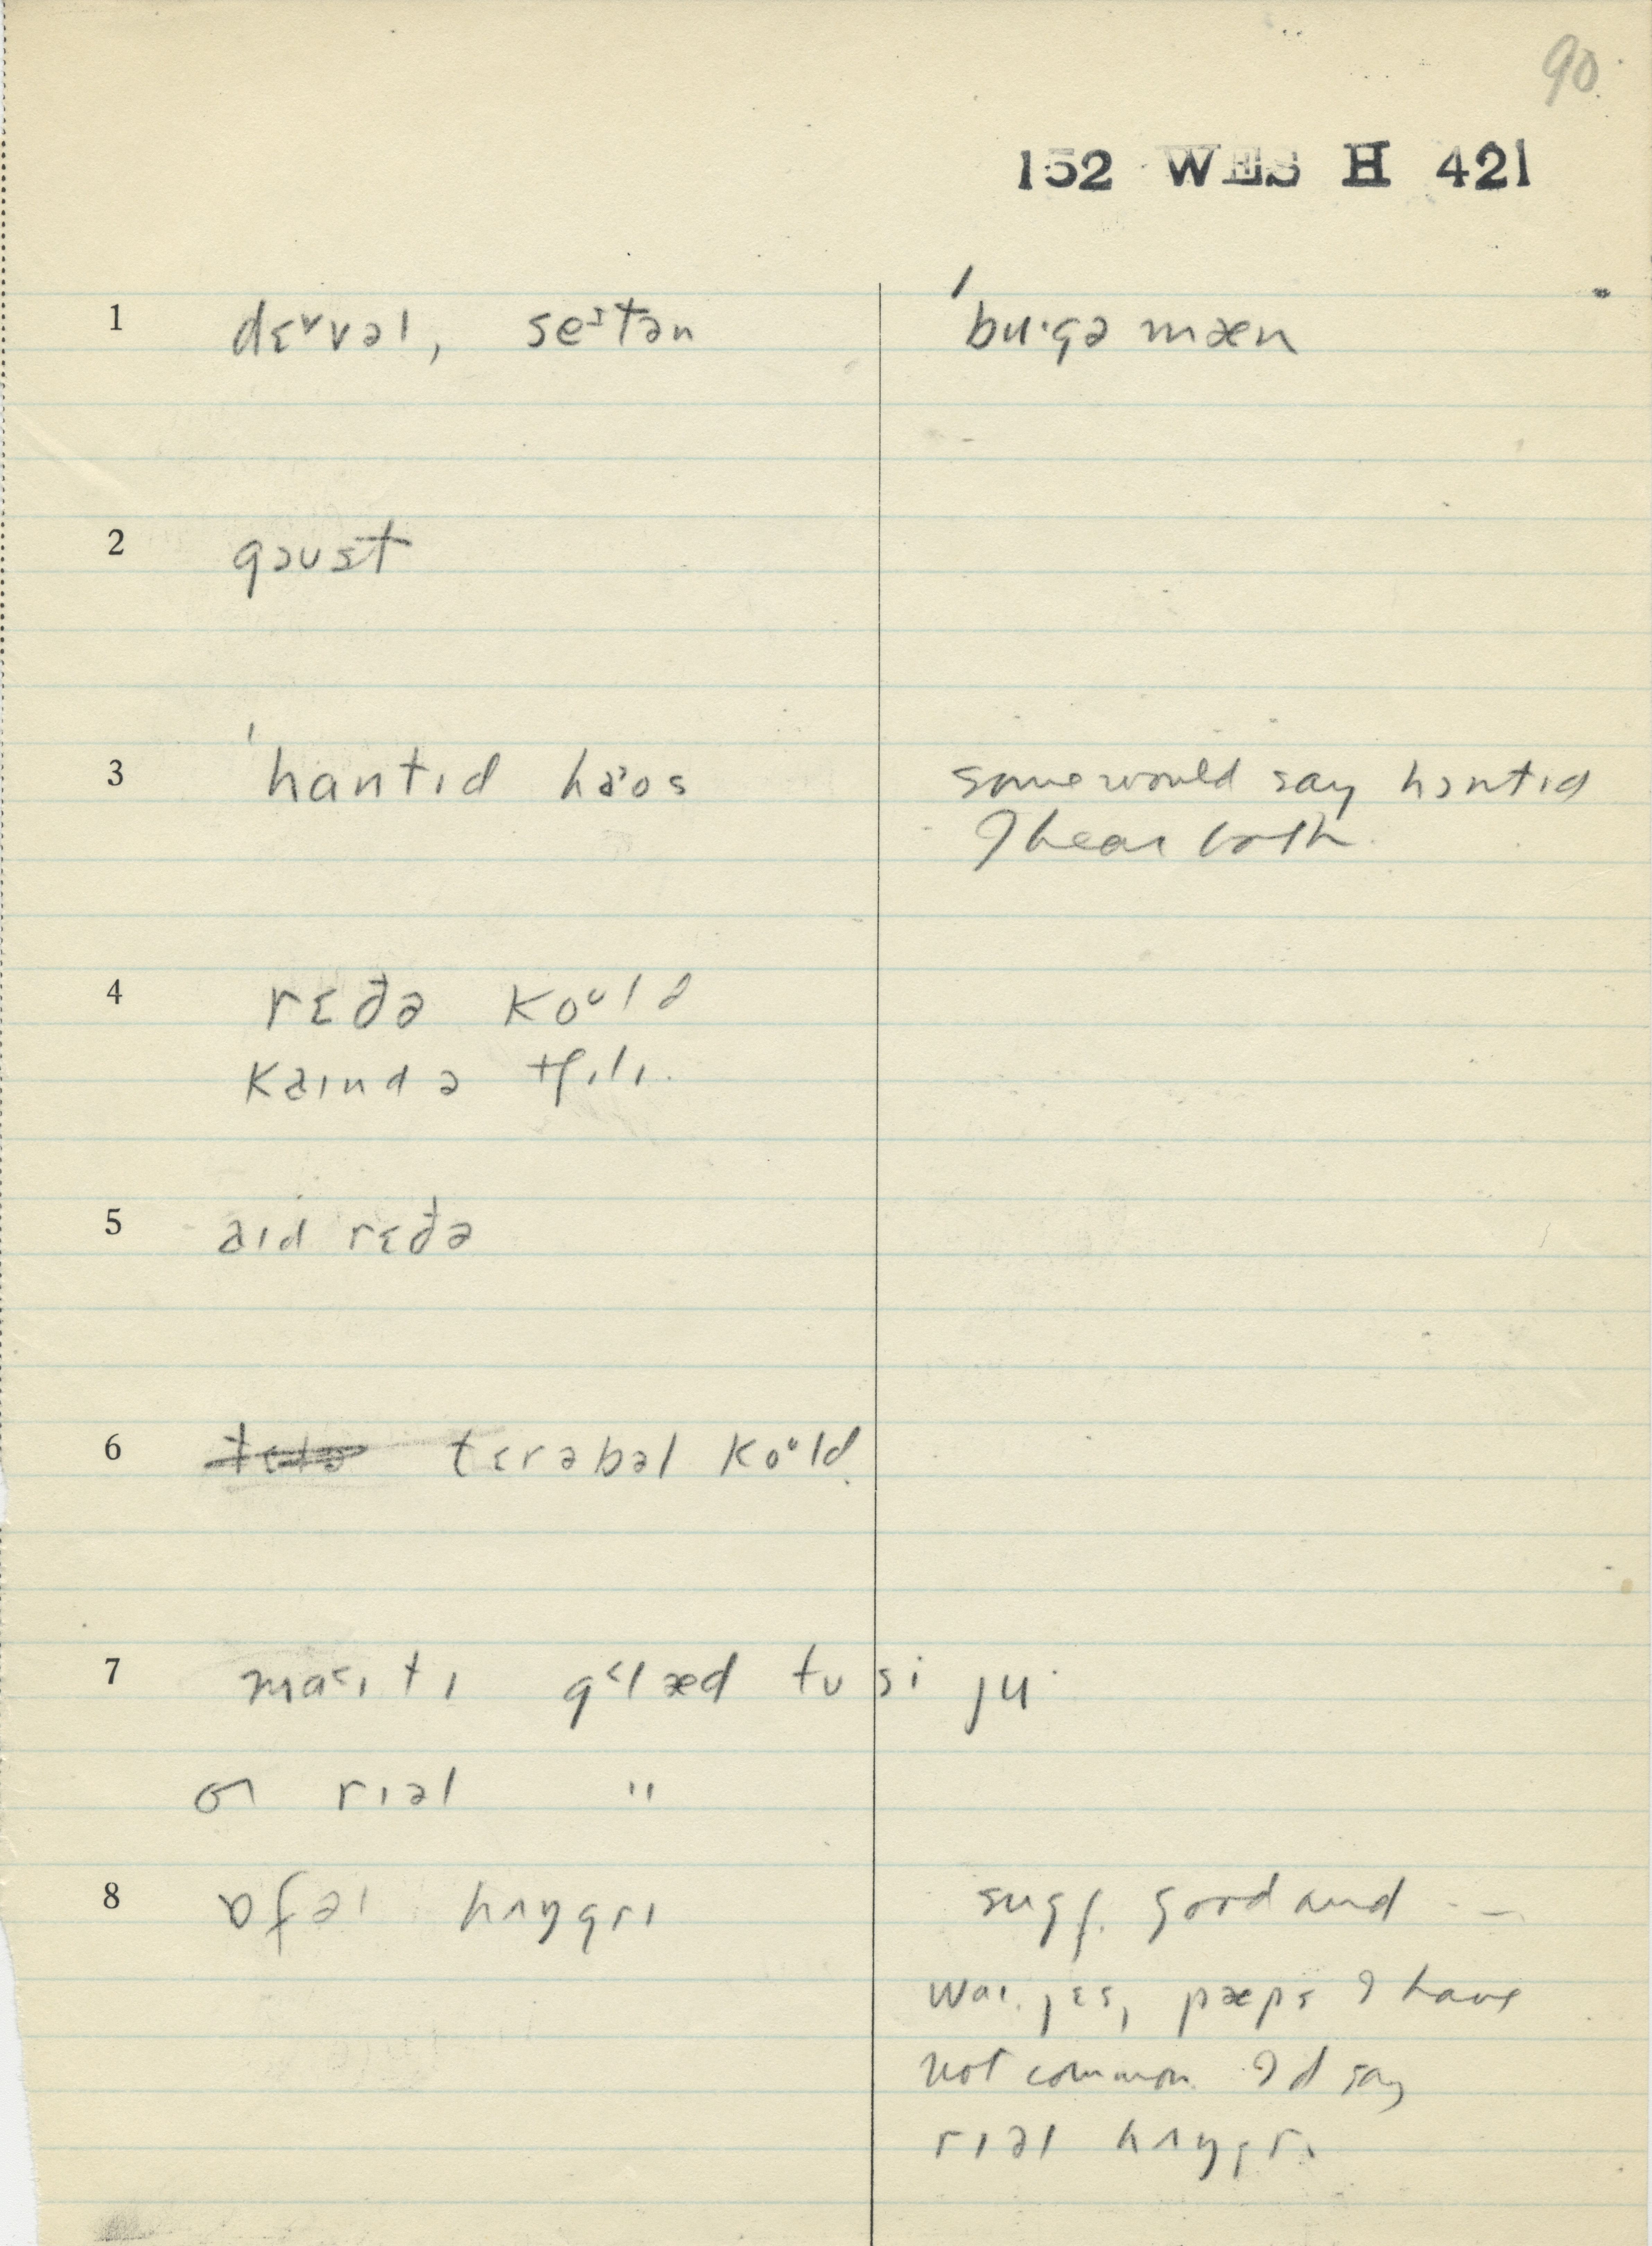 90
152 WES H 421
1 dɛᵛvəl, seᶾtən ˈbu·gə mæn
2 goust
3 ˈhantɪd haᵊos some would say hɔntɪd
I hear both
4 rɛðə koᵘld
kaɪndə tʃɪlɪ.
5 aɪd rɛðə
6 tɛrəbəl koᵘld
7 tɪ glæd tu si ju
or rɪəl "
8 ɒfəl hʌŋgrɪ sugg. good and - -
jɛs, pæps I have
not common I'd say
rɪəl hʌŋgrɪ